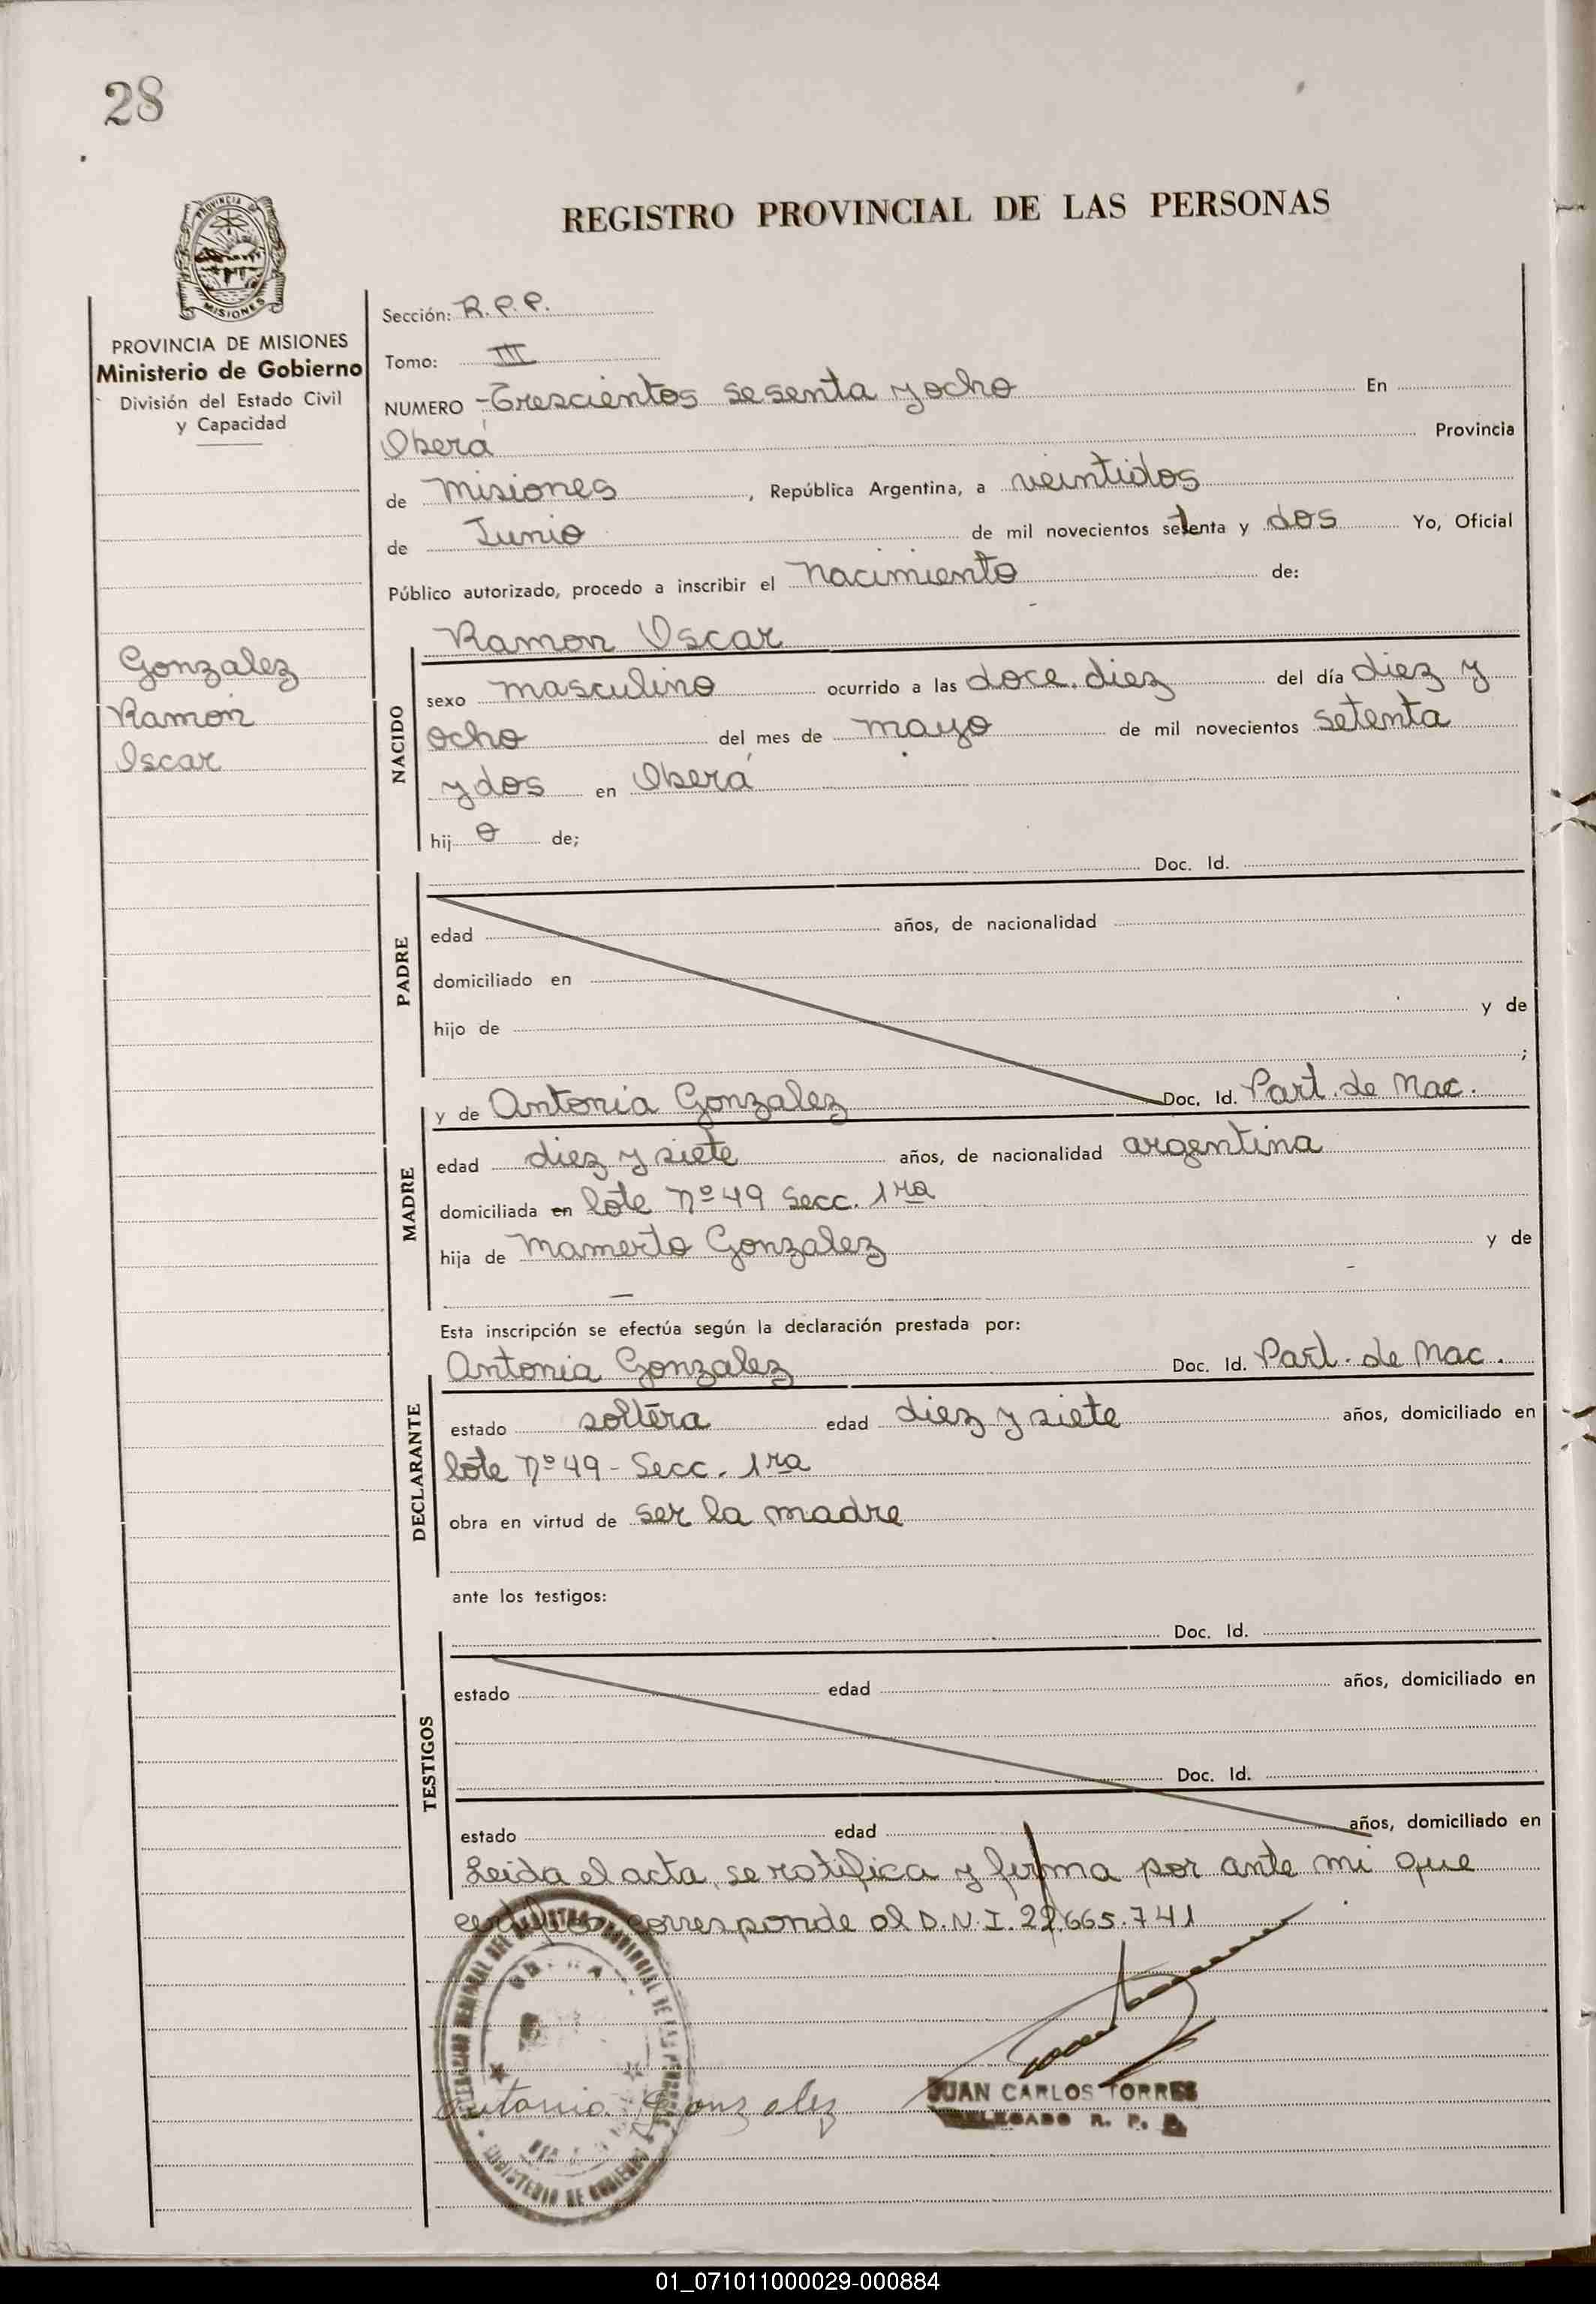 28
REGISTRO PROVINCIAL DE LAS PERSONAS
PROVINCIA DE MISIONES
Ministerio de Gobierno
División del Estado Civil
y Capacidad
Gonzalez
Ramon
Oscar
Sección: R.P.P.
Tomo: III
NUMERO -Trescientos sesenta y ocho En
Oberá Provincia
de Misiones, República Argentina, a veintidos
de Junio de mil novecientos setenta y dos Yo, Oficial
Público autorizado, procedo a inscribir el nacimiento de:
NACIDO
Ramon Oscar
sexo masculino ocurrido a las doce.diez del día diez y
ocho del mes de mayo de mil novecientos setenta
y dos en Oberá
hij o de;
PADRE
Doc. Id.
edad años, de nacionalidad
domiciliado en
hijo de y de
;
MADRE
y de Antonia Gonzalez Doc. Id. Part. de Nac.
edad diez y siete años, de nacionalidad argentina
domiciliada en lote Nº 49 Secc. 1ra
hija de Mamerto Gonzalez y de
—
Esta inscripción se efectúa según la declaración prestada por:
DECLARANTE
Antonia Gonzalez Doc. Id. Part. de Nac.
estado soltera edad diez y siete años, domiciliado en
lote Nº 49 - Secc. 1ra
obra en virtud de ser la madre
ante los testigos:
TESTIGOS
Doc. Id.
estado edad años, domiciliado en
Doc. Id.
estado edad años, domiciliado en
Leida el acta, se ratifica y firma por ante mi que
certifico corresponde al D.N.I. 22.665.741
Antonia Gonzalez
JUAN CARLOS TORRES
DELEGADO R. P. P.
01_071011000029-000884